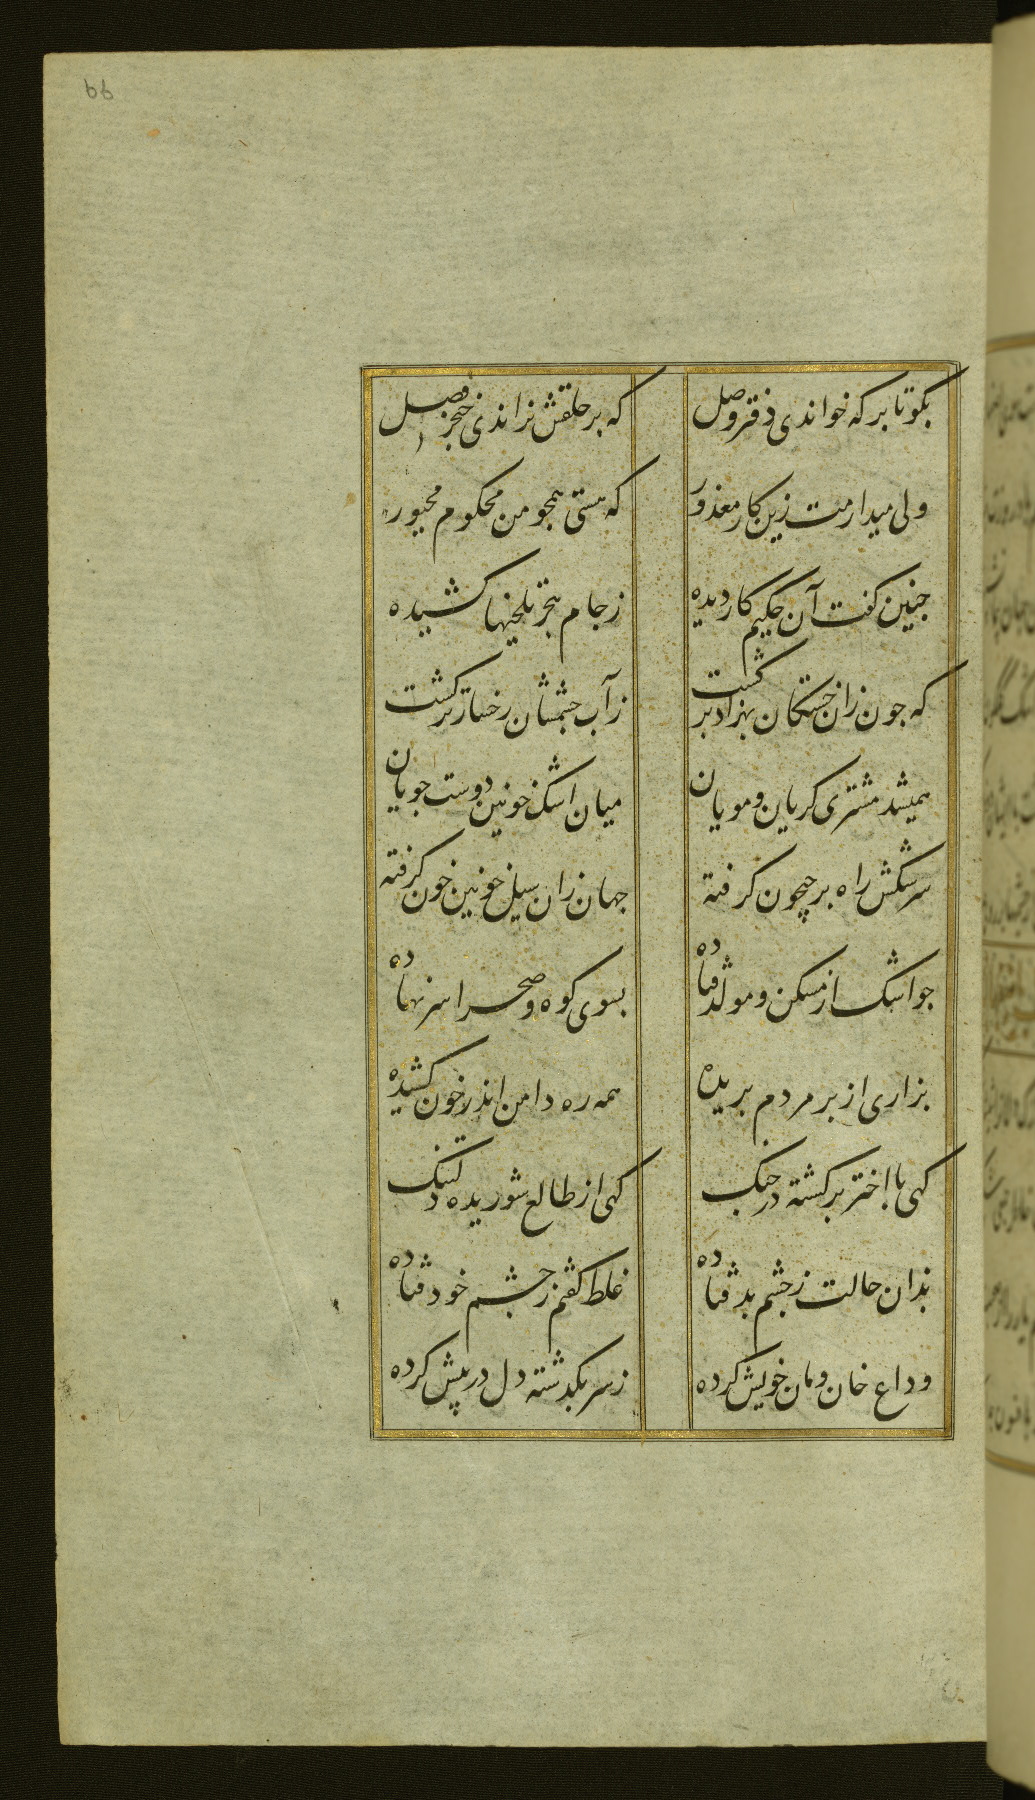 ۶۶
بکو تا بر که خواندی دفتر وصل که بر حلقش نراندی خنجر فصل
ولی میدارمت زین کار معذور که هستی همچو من محکوم و مجبور
جنین کفت آن حکیم کار دیده ز جام هجر تلخیها کشیده
که جون زان خستکان بهزاد برکشت ز آب جشمشان رخسار تر کشت
همیشد مشتری کریان و مویان میان اشک خونین دوست جویان
سرشکش راه بر جیحون کرفته جهان زان سیل خونین خون کرفته
جو اشک از مسکن و مولد فتاده بسوی کوه و صحرا سر نهاده
بزاری از بر مردم بریده همه ره دامن اندر خون کشیده
کهی با اختر برکشته در جنک کهی از طالع شوریده دلتنک
بدان حالت ز جشم بد فتاده غلط کفتم ز جشم خود فتاده
وداع خان و مان خویش کرده ز سر بکذشته دل در پیش کرده